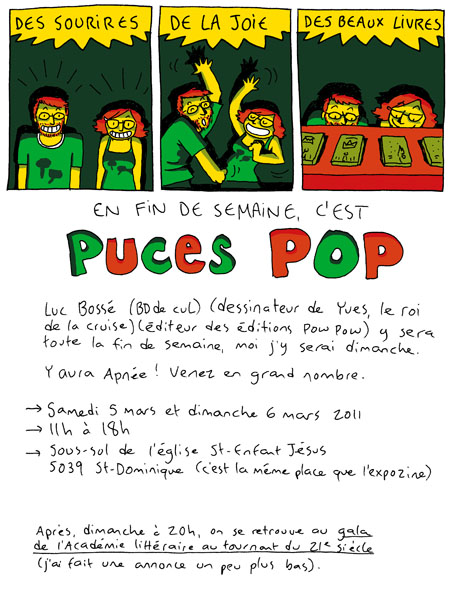 DES SOURIRES
DE LA JOIE
DES BEAUX LIVRES
EN FIN DE SEMAINE, C'EST
PUCES POP
Luc Bossé (BD de cul) (dessinateur de Yves, le roi
de la cruise) (éditeur des éditions Pow Pow) y sera
toute la fin de semaine, moi j'y serai dimanche.
Y aura Apnée! Venez en grand nombre.
→ Samedi 5 mars et dimanche 6 mars 2011
→ 11h à 18h
→ Sous-sol de l'église St-Enfant Jésus
5039 St-Dominique (c'est la même place que l'expozine)
Après, dimanche à 20h, on se retrouve au gala
de l'Académie littéraire au tournant du 21e siècle
(j'ai fait une annonce un peu plus bas).